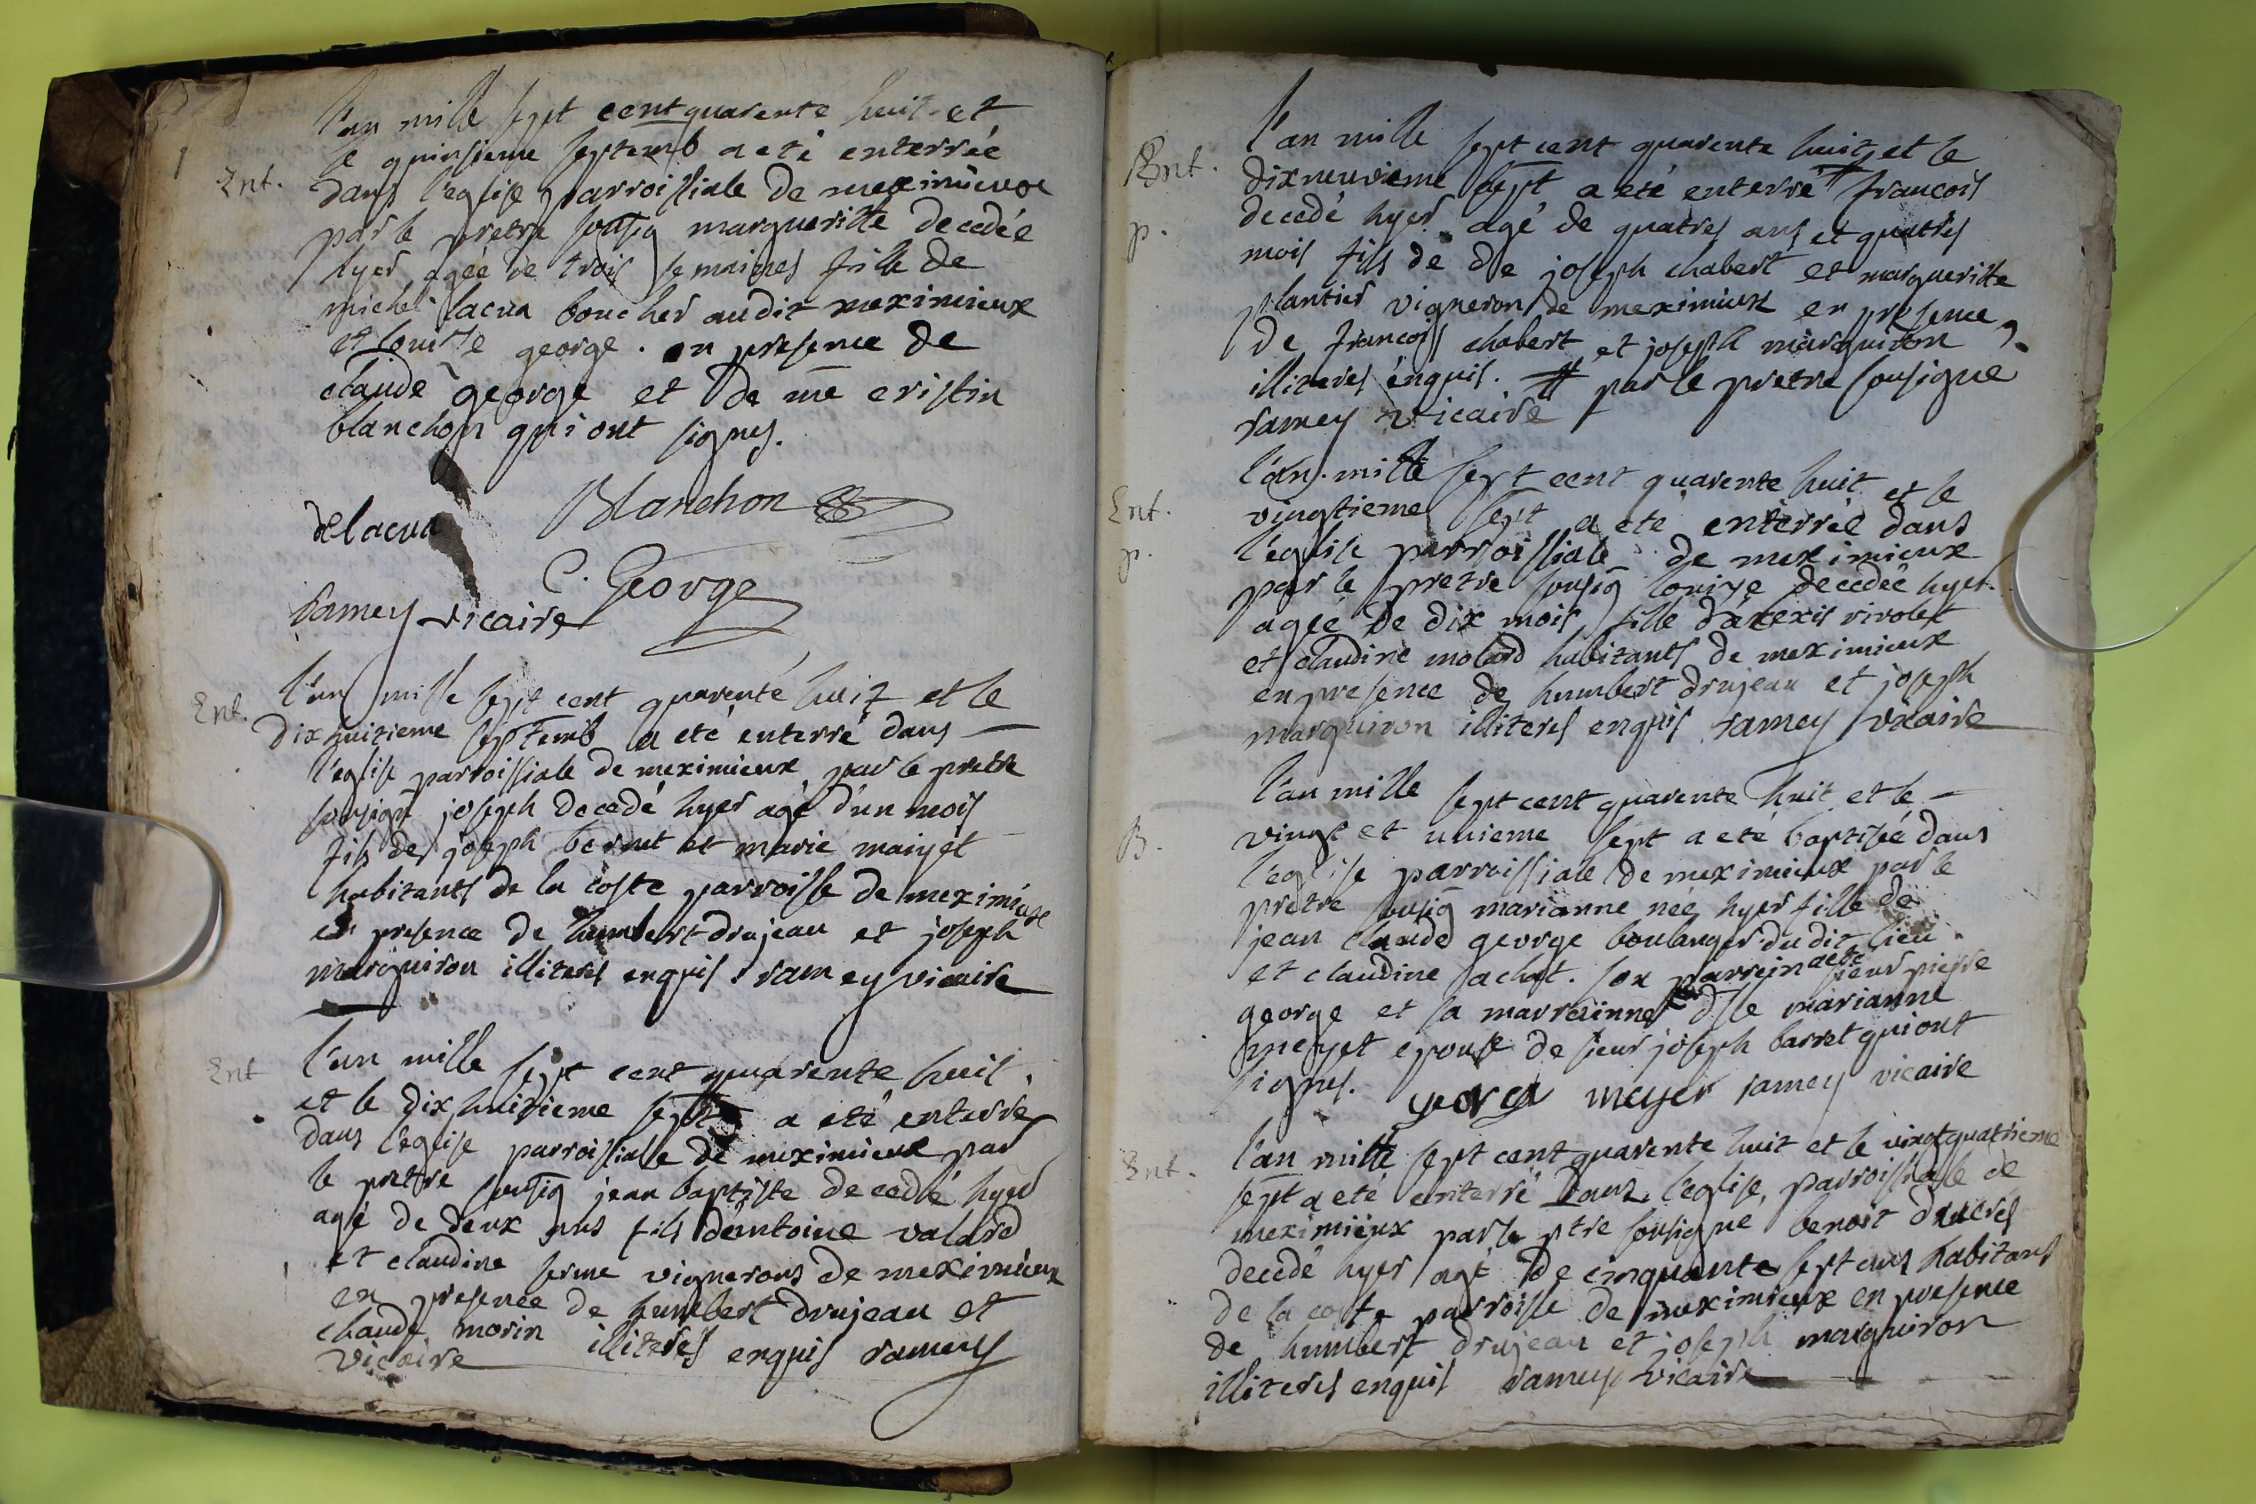 l'an mille sept cent quarente huit et
Ent. le quinsieme septemb a eté enterrée
dans l'eglise parroissiale de meximieux
par le pretre sousig margueritte decedée
hyer agée de trois semaines fille de
michel lacua boucher audit meximieux
et louise george . en presence de
claude george et de me cristin
blanchon qui ont signes.
delacua Blanchon
C. George
ramey vicaire
Ent. l'an mille sept cent quarente huit et le
dixhuitieme septemb a eté enterré dans
l'eglise parroissiale de meximieux par le pretre
sousigné joseph decedé hyer agé d'un mois
fils de joseph bernet et marie maiyet
habitants de la coste parroisse de meximieux
en presence de humbert drujeau et joseph
marquiron illiteres enquis . ramey vicaire
Ent l'an mille sept cent quarente huit
et le dix huitieme sept a eté enterré
dans l'eglise parroissialle de meximieux par
le pretre sousig jean baptiste decedé hyer
agé de deux ans fils d'entoine valard
et claudine serme vignerons de meximieux
en presence de humbert drujeau et
claude morin illiteres enquis ramey
vicaire
l'an mille sept cent quarente huit et le
Ent. dixneuvieme sept a eté enterré # francois
p. decedé hyer agé de quatres ans et quatres
mois fils de de joseph chabert et margueritte
plantier vigneron de meximieux en presence
de francois chabert et joseph marquiron
illiteres enquis. # par le pretre sousigne
ramey vicaire
l'an mille sept cent quarente huit et le
Ent. vingtieme sept a ete enterrée dans
p. l'eglise parroissiale de meximieux
par le pretre sousig louise decedée hyer
agée de dix mois fille d'alexis rivolet
et claudine molard habitants de meximieux
en presence de humbert drujeau et joseph
marquiron illiteres enquis ramey vicaire
l'an mille sept cent quarente huit et le
B. vingt et unieme sept a eté baptisée dans
l'eglise parroissiale de meximieux par le
pretre sousig marianne née hyer fille de
jean claude george boulanger dudit lieu
et claudine achat. son parrein a eté sieur pierre
george et sa marreinne dlle marianne
meyet epouse de sieur joseph barret qui ont
signes. george meyer ramey vicaire
Ent. l'an mille sept cent quarente huit et le vingtquatrieme
sept a eté enterré dans l'eglise, parroissiale de
meximieux par le ptre sousigné benoit ducres
decedé hyer agé de cinquante sept ans habitans
de la coste parroisse de meximieux en presence
de humbert drujeau et joseph marquiron
illiteres enquis ramey vicaire